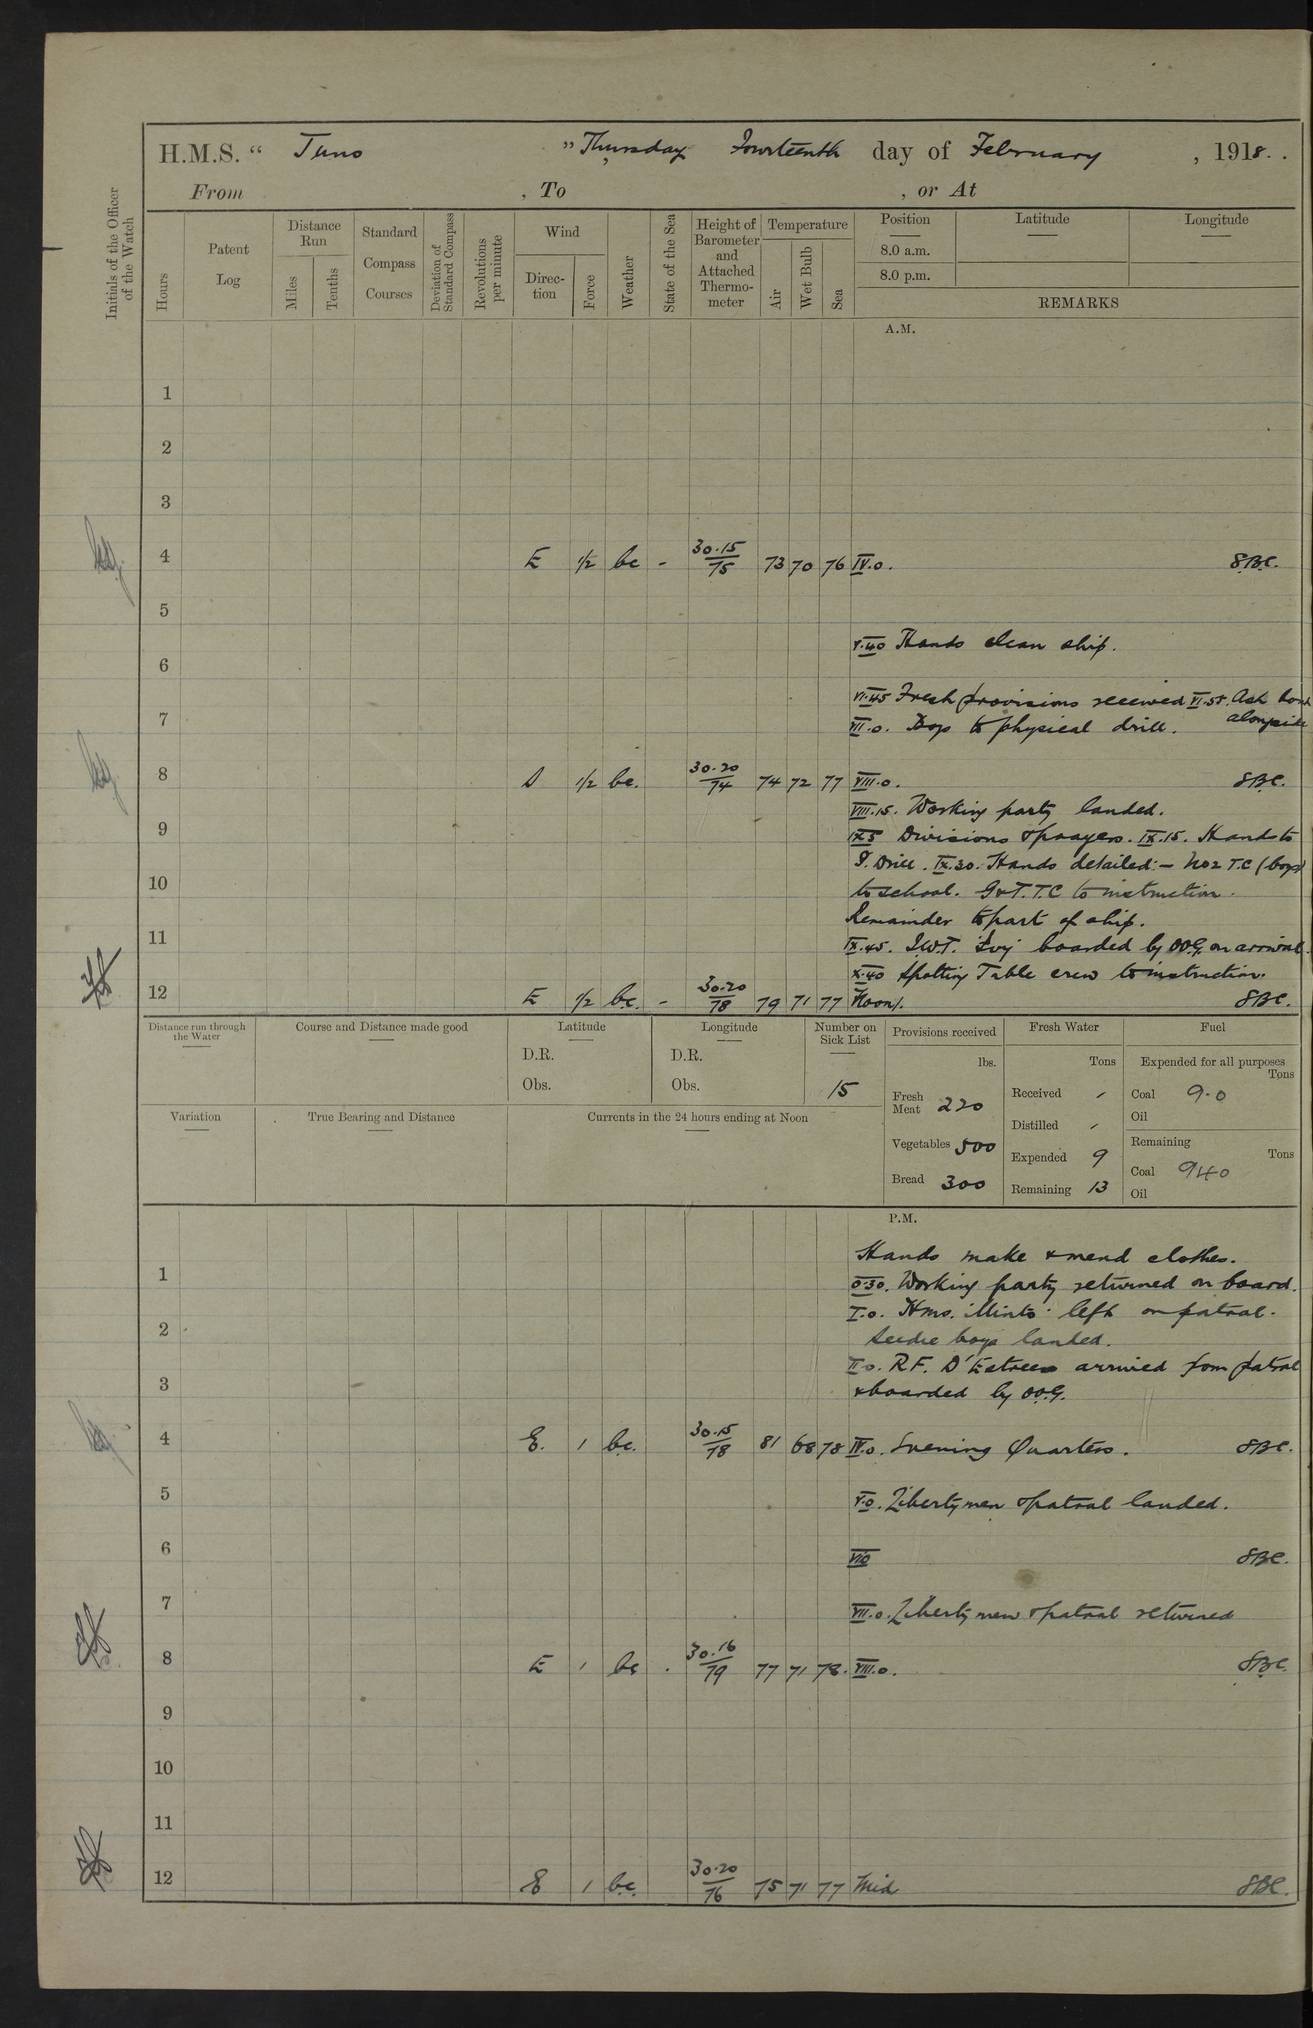 H.M.S. “ Juno ” Thursday Fourteenth day of February , 1918.
From , To , or At
Initials of the Officer of the Watch
Hours
Patent Log
Distance Run
Miles
Tenths
Standard Compass Courses
Deviation of Standard Compass
Revolutions per minute
Wind
Direc-tion
Force
Weather
State of the Sea
Height of Barometer and Attached Thermo-meter
Temperature
Air
Wet Bulb
Sea
Position Latitude Longitude
8.0 a.m.
8.0 p.m.
REMARKS
A.M.
1
2
3
4 E ½ bc - 30.15/75 73 70 76 IV.0. SBC.
5
V.40 Hands clean ship.
6
VI.45 Fresh provisions received VI.58. Ash boat
7 alongside
VII.0. Boys to physical drill.
8 S ½ bc. 30.20/74 74 72 77 VIII.0. SBC.
VIII.15. Working party landed.
9 IX.5 Divisions & prayers. IX.15. Hands to
P. Drill. IX.30. Hands detailed:- No 2 T.C (boys)
10 to school. G & T. T.C to instruction.
Remainder to part of ship.
11 IX.45. I.W.T. Ivy boarded by OOG on arrival.
X.40 Spotting Table crew to instruction.
12 E ½ bc. - 30.20/78 79 71 77 Noon. SBC.
Distance run through the Water
Course and Distance made good
Latitude
D.R.
Obs.
Longitude
D.R.
Obs.
Number on Sick List
15
Provisions received
lbs.
Fresh Meat 220
Vegetables 500
Bread 300
Fresh Water
Tons
Received -
Distilled -
Expended 9
Remaining 13
Fuel
Expended for all purposes
Tons
Coal 9.0
Oil
Remaining
Tons
Coal 940
Oil
Variation
True Bearing and Distance
Currents in the 24 hours ending at Noon
P.M.
Hands make & mend clothes.
1 0.30. Working party returned on board.
I.0. Hms. Minto left on patrol.
2 Seedie boys landed.
II.0. R.F. D'Estrees arrived from patrol
3 & boarded by OOG.
4 E. 1 bc. 30.15/78 81 68 78 IV.0. Evening Quarters. SBC.
5 V.0. Liberty men & patrol landed.
6 VI.0 SBC.
7 VII.0. Liberty men & patrol returned
8 E 1 bc . 30.16/79 77 71 78. VIII.0. SBC.
9
10
11
12 E 1 bc. 30.20/76 75 71 77 Mid SBC.